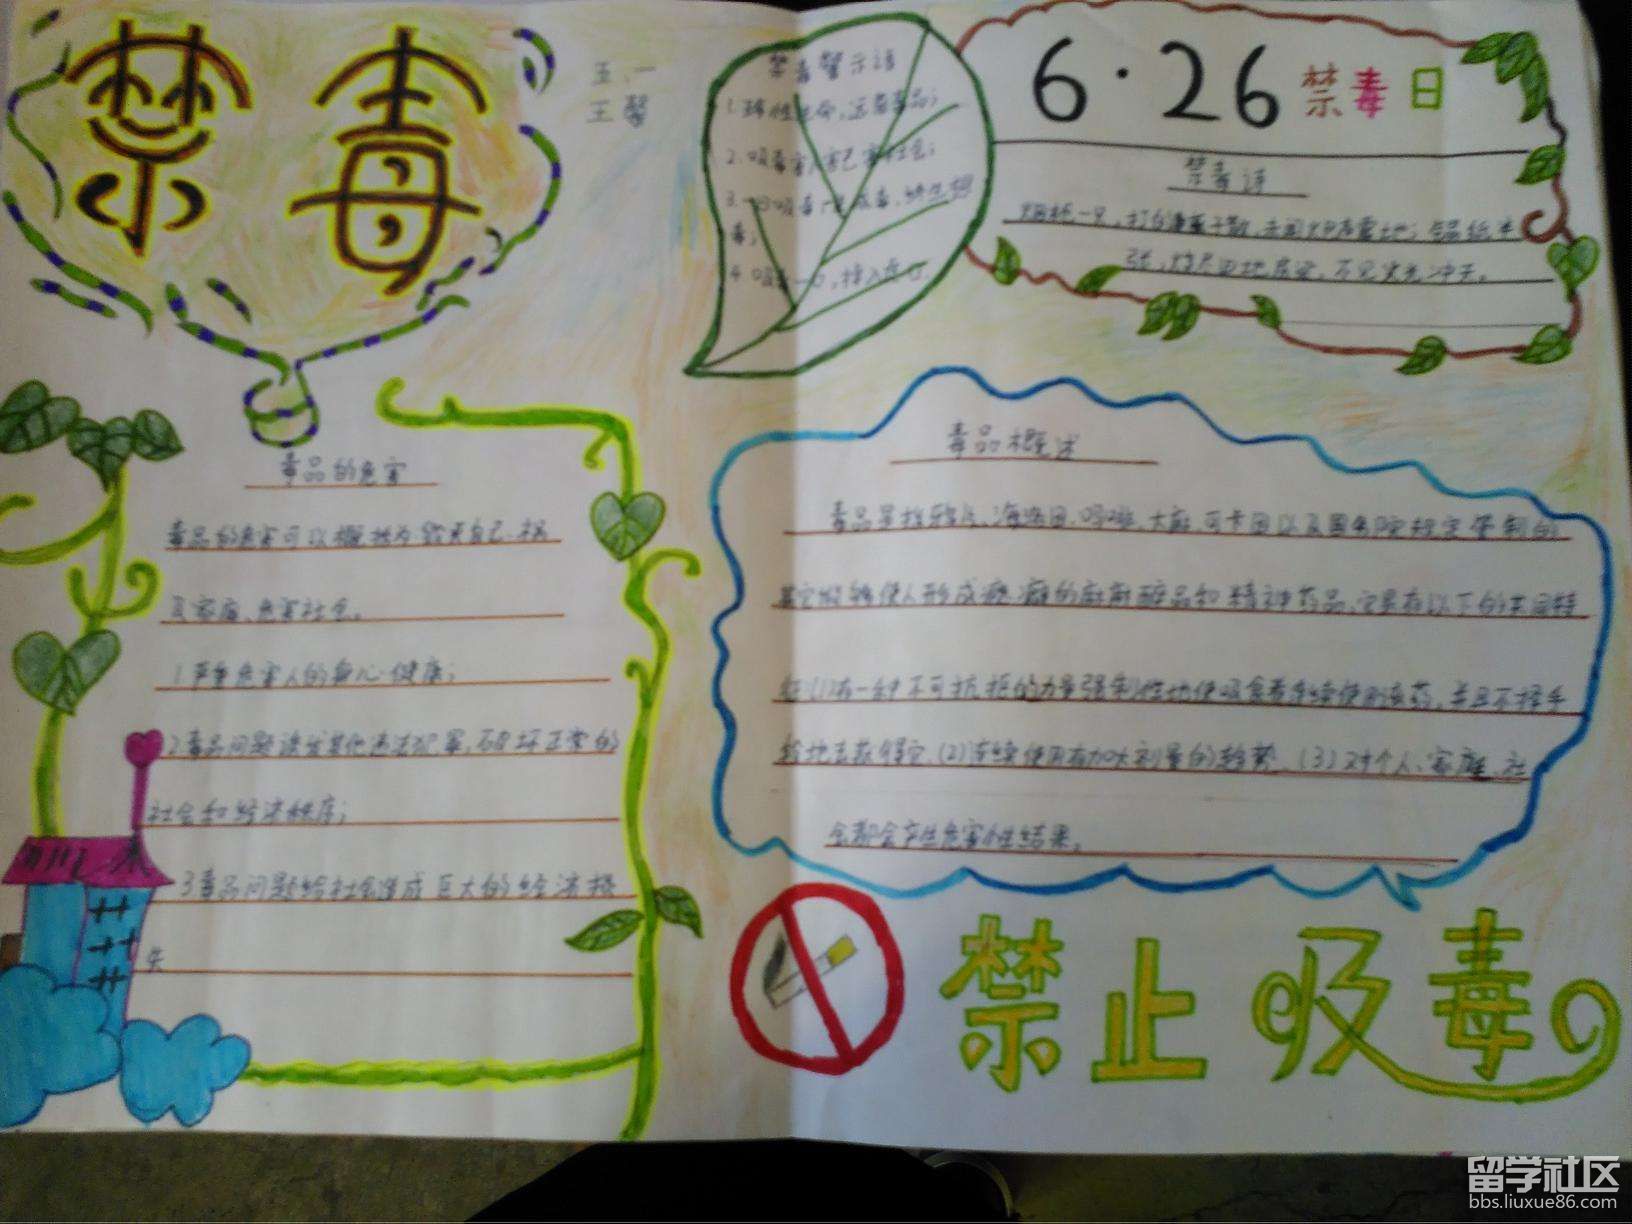 禁毒
五、一
王馨
禁毒警示语
1.珍惜生命,远离毒品;
2.吸毒害人害己害社会;
3.一日吸毒,终生想
毒;
4.吸毒一口,掉入虎口
6·26禁毒日
禁毒诗
烟枪一只,打
张,烧尽田地房梁,不见火光冲天。
毒品的危害
毒品的危害可以概括为毁灭自己、祸
及家庭、危害社会。
1严重危害人的身心健康;
2毒品问题诱发其他违法犯罪,破坏正常的
社会和经济秩序;
3毒品问题给社会造成巨大的经济损
失
毒品概述
毒品是指鸦片、海洛因、吗啡、大麻、可卡因以及国务院规定管制的
其它能够使人形成瘾癖的麻醉品和精神药品,它具有以下的共同特
征:(1)有一种不可抗拒的力量强制性地使吸食者连续使用该药,并且不择手
段地去获得它、(2)连续使用有加大剂量的趋势、(3)对个人、家庭、社
会都会产生危害性结果。
禁止吸毒
留学社区
bbs.liuxue86.com